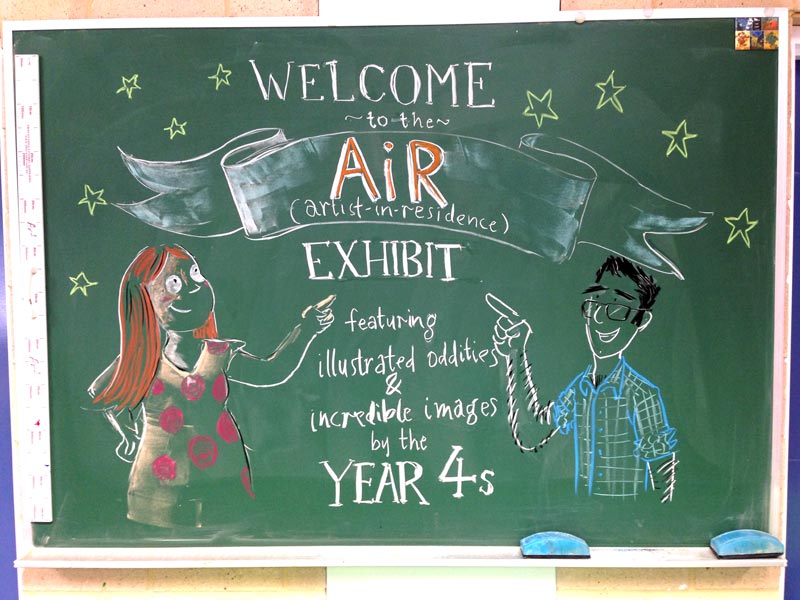 WELCOME
~to the~
AiR
(artist-in-residence)
EXHIBIT
featuring
illustrated oddities
&
incredible images
by the
YEAR 4s